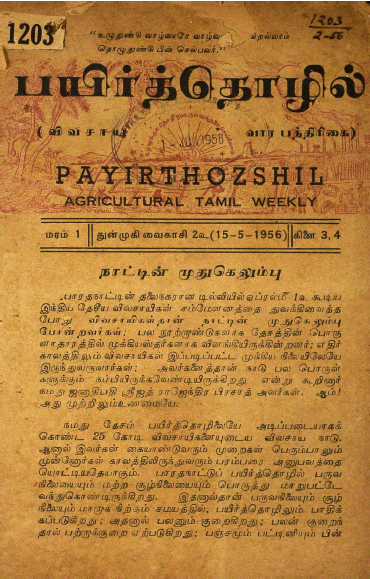 1203
1203
2-56
"உழுதுண்டு வாழ்வாரே வாழ்வார்
தொழுதுண்டு பின் செல்பவர்."
பயிர்த்தொழில்
(விவசாய வார பத்திரிகை)
1- JU 1956
PAYIRTHOZSHIL
AGRICULTURAL TAMIL WEEKLY
மரம் 1 துன்முகி வைகாசி 2௳ (15-5-1956) கிளை 3, 4
நாட்டின் முதுகெலும்பு
பாரதநாட்டின் தலைநகரான டில்லியில் ஏப்ரல்மீ 1௳ கூடிய
இந்திய தேசிய விவசாயிகள் சம்மேளனத்தை துவக்கிவைத்த
போது விவசாயிகள்தான் நாட்டின் முதுகெலும்பு
போன்றவர்கள்; பல நூற்றாண்டுகளாக தேசத்தின் பொரு
ளாதாரத்தில் முக்கியஸ்தர்களாக விளங்கியிருக்கின்றனர்; எதிர்
காலத்திலும் விவசாயிகள் இப்படிப்பட்ட முக்கிய நிலையிலேயே
இருந்துவருவார்கள்; அவர்களைத்தான் நாடு பல பொருள்
களுக்கும் நம்பியிருக்கவேண்டியிருக்கிறது என்று கூறினார்
நமது ஜனாதிபதி ஸ்ரீஜத் ராஜேந்திர பிரசாத் அவர்கள். ஆம்!
அது முற்றிலும் உண்மையே.
நமது தேசம் பயிர்த்தொழிலையே அடிப்படையாகக்
கொண்ட 25 கோடி விவசாயிகளையுடைய விவசாய நாடு.
ஆனால் இவர்கள் கையாண்டுவரும் முறைகள் பெரும்பாலும்
முன்னோர்கள் காலத்திலிருந்துவரும் பரம்பரை அனுபவத்தை
யொட்டியதேயாகும். பாரதநாட்டுப் பயிர்த்தொழில் பருவ
நிலையையும் மற்ற சூழ்நிலையையும் பொருத்து மாறுபட்டே
வந்துகொண்டிருக்கிறது. இதனால்தான் பருவநிலையும் சூழ்
நிலையும் மாறுக நிற்கும் சமயத்தில், பயிர்த்தொழிலும் பாதிக்
கப்படுகிறது; அதனால் பலனும் குறைகிறது; பலன் குறைந்
தால் பற்றாக்குறை ஏற்படுகிறது; பஞ்சமும் பட்டினியும் பின்